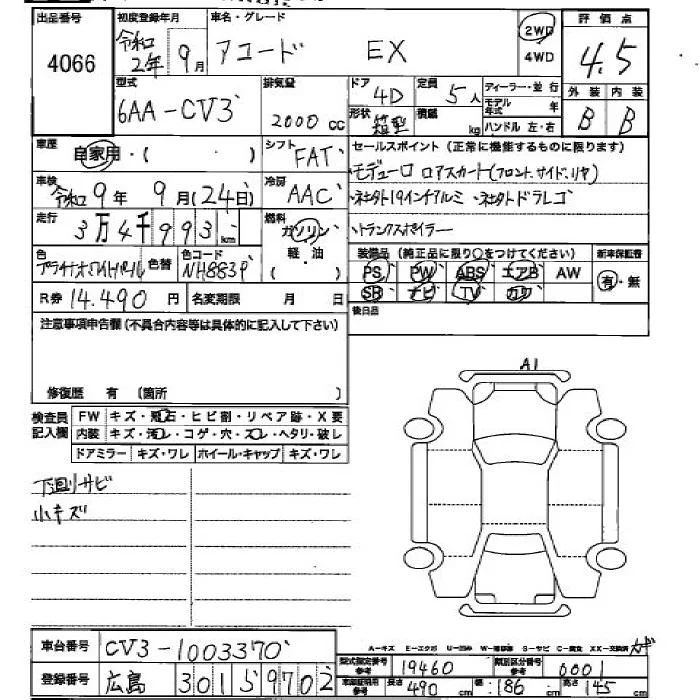 出品番号 初度登録年月 車名・グレード 評価点
4066 令和2年 9月 アコード EX 2WD 4WD 4.5
型式 排気量 ドア 定員 ディーラー・並行 外装 内装
6AA-CV3 2000 cc 4D 5人 モデル年式 年 B B
形状 箱型 積載 kg ハンドル 左・右
車歴 自家用・( ) シフト FAT セールスポイント(正常に機能するものに限ります)
車検 令和9年 9月(24日) 冷房 AAC ・モデューロ ロアスカート(フロント、サイド、リヤ)
・ネオクト19インチアルミ ・ネオクトドラレコ
走行 3万4千993km 燃料 ガソリン・軽・油 ・トランクスポイラー
色 プラチナホワイトパール 色替 色コード NH883P 装備品(純正品に限り○をつけてください) 新車保証書
PS PW ABS エアB AW 有・無
SR ナビ TV カワ
R券 14,490円 名変期限 月 日 後日品
注意事項申告欄(不具合内容等は具体的に記入して下さい)
修復歴 有 (箇所 )
A1
検査員記入欄 FW キズ・飛石・ヒビ割・リペア跡・X要
内装 キズ・汚レ・コゲ・穴・スレ・ヘタリ・破レ
ドアミラー キズ・ワレ ホイール・キャップ キズ・ワレ
下回りサビ
小キズ
車台番号 CV3-1003370
A-キズ E-エクボ U-凹み W-補修跡 S-サビ C-腐食 XX-交換済
型式指定番号 参考 19460 類別区分番号 参考 0001
登録番号 広島 301 ら 9702
長さ 490 cm 幅 186 cm 高さ 145 cm